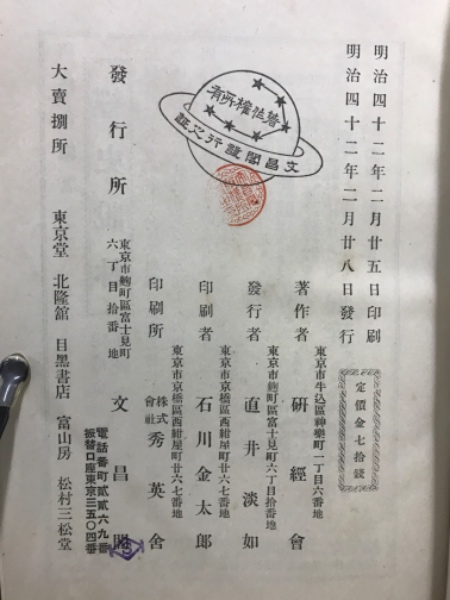 明治四十二年二月廿五日印刷
明治四十二年二月廿八日發行
定價金七拾錢
著作者
東京市牛込區神樂町一丁目六番地
研經會
發行者
東京市麴町區富士見町六丁目拾番地
直井淡如
印刷者
東京市京橋區西紺屋町廿六七番地
石川金太郎
印刷所
東京市京橋區西紺屋町廿六七番地
株式會社 秀英舍
發行所
東京市麴町區富士見町六丁目拾番地
文昌閣
電話番町貳貳六九番
振替口座東京三五〇四番
大賣捌所
東京堂 北隆館 目黑書店 富山房 松村三松堂
有所權
文昌閣發行之証